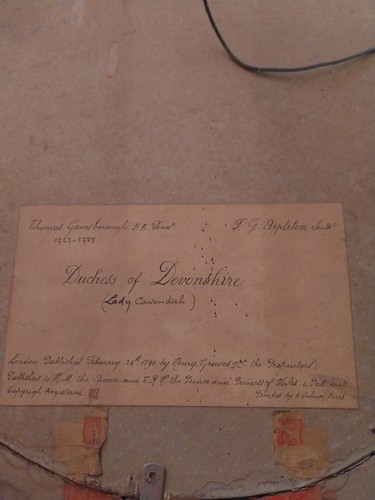 Thomas Gainsborough R.A. Pinxt T. G. Appleton Sculpt
Duchess of Devonshire
(Lady Cavendish)
London Published February 24th by Henry Graves & Co the Proprietors
Publishers to H.M. the Queen and T.R.H. the Prince and Princess of Wales 6 Pall Mall
Copyright Registered Printed by